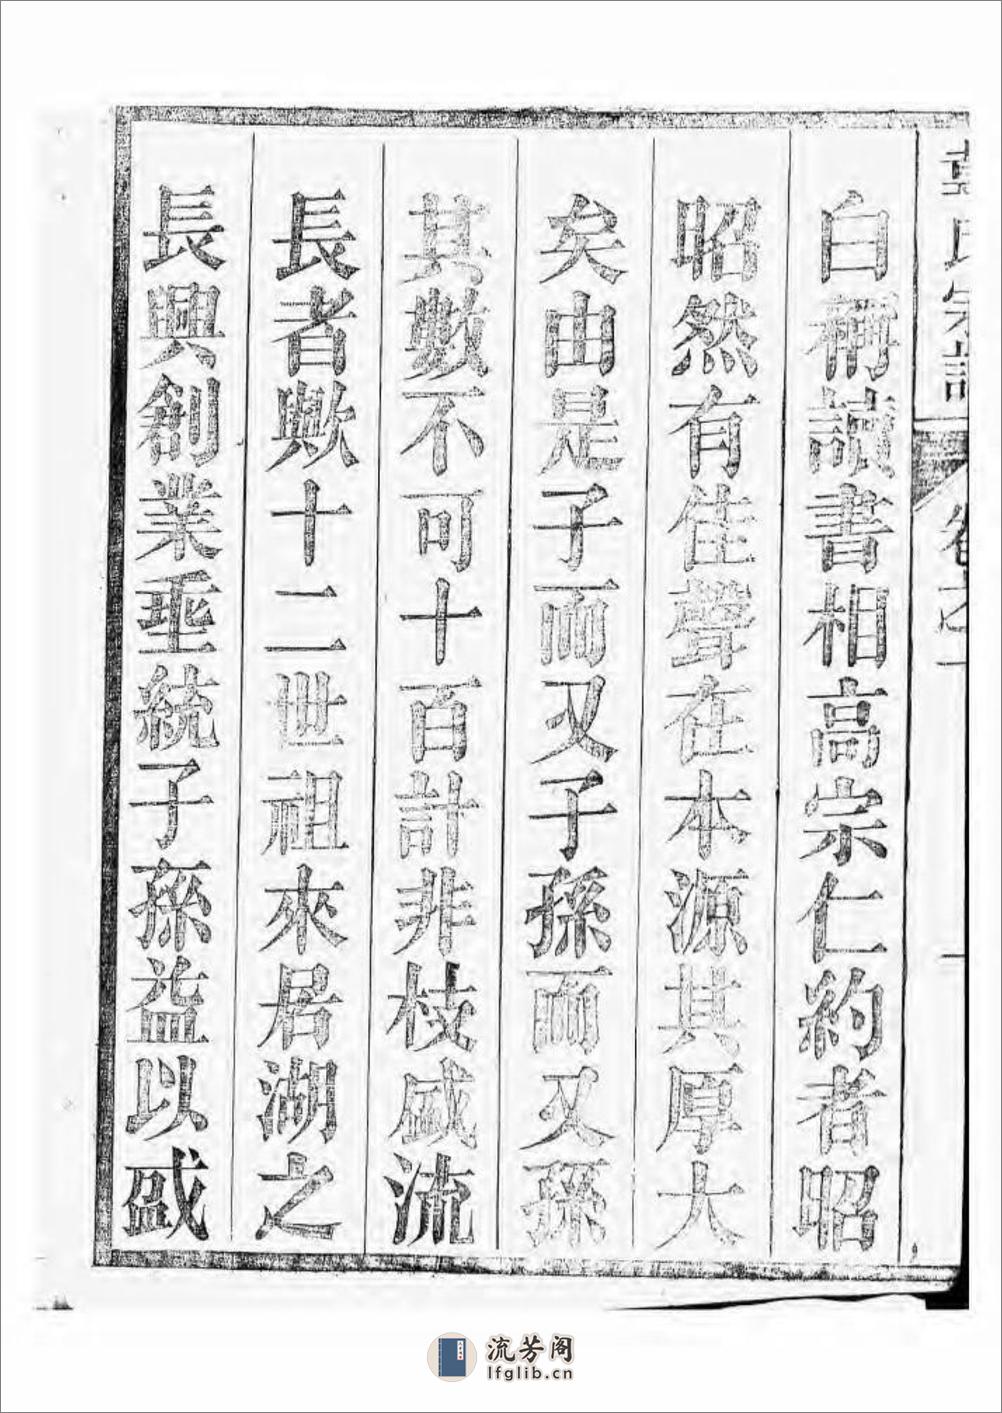 氏宗譜 卷之一
白稱讀書相高宗仁約者昭
昭然有佳聲在本源其厚大
矣由是子而又子孫而又孫
其數不可十百計非枝盛流
長者歟十二世祖來居湖之
長興創業垂統子孫益以盛
流芳阁
lfglib.cn